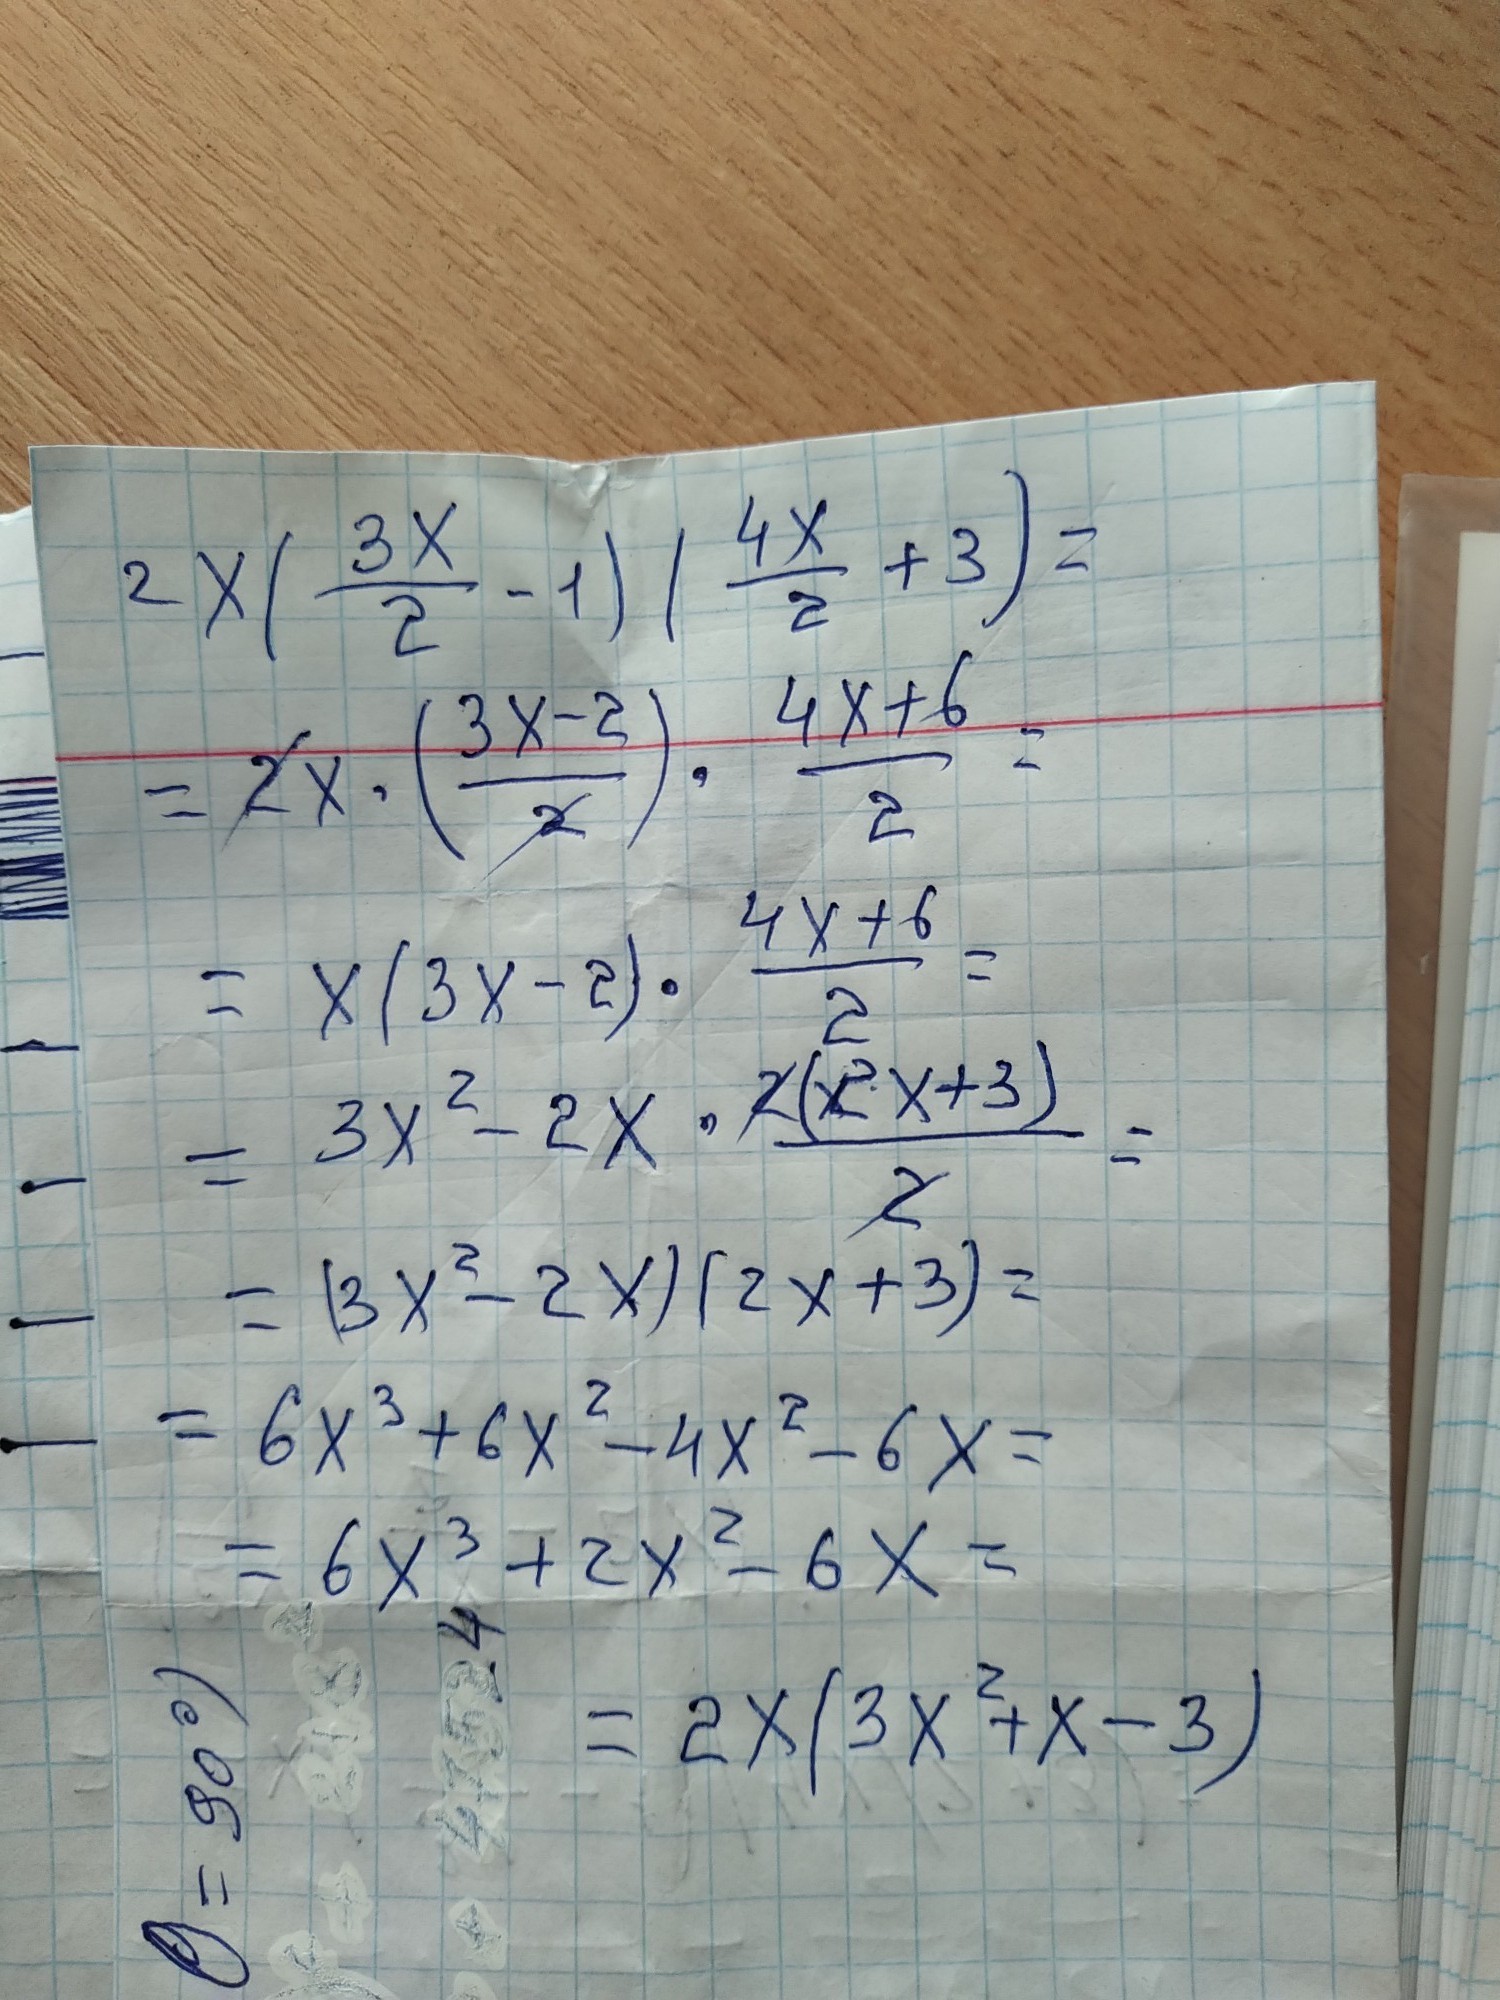 2x(3x/2 - 1)(4x/2 + 3) =
= 2x · (3x-2/2) · 4x+6/2 =
= x(3x-2) · 4x+6/2 =
= 3x² - 2x · 2(2x+3)/2 =
= (3x² - 2x)(2x+3) =
= 6x³ + 6x² - 4x² - 6x =
= 6x³ + 2x² - 6x =
= 2x(3x² + x - 3)
= 90°)